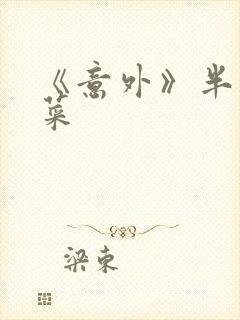 《意外》半
菜
梁束